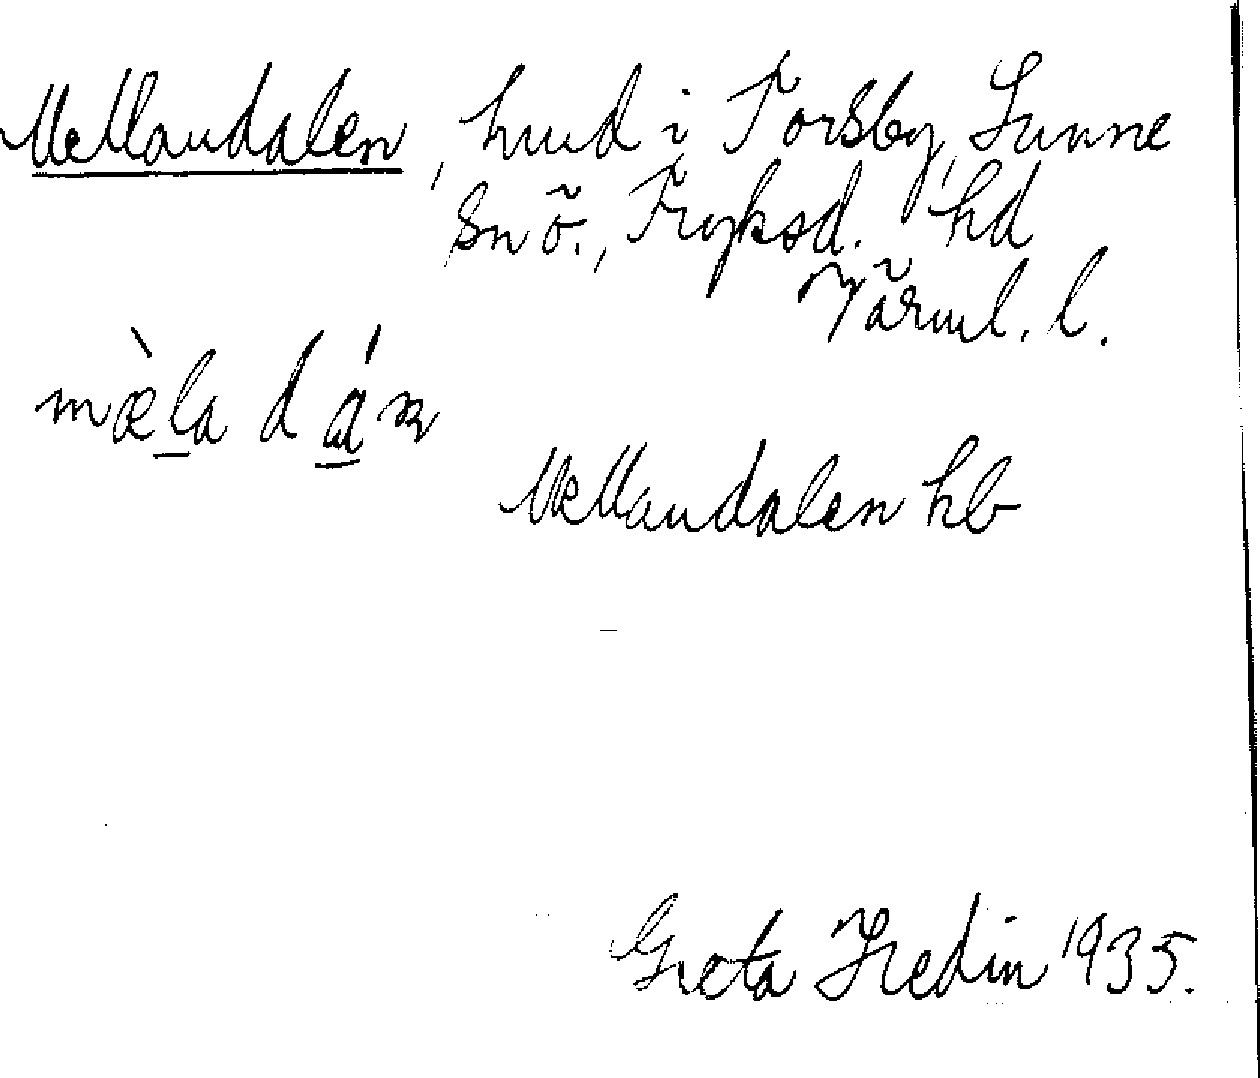 Mellandalen, hmd i Torsby, Sunne
snö., Fryksd. hd
Värml. l.
mæ̀la dá̠n
Mellandalen hb
Greta Hedin 1935.